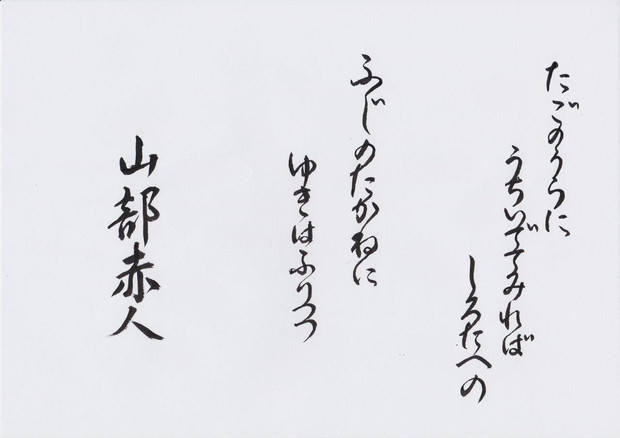 たごのうらに
うちいでてみれば
しろたへの
ふじのたかねに
ゆきはふりつつ
山部赤人